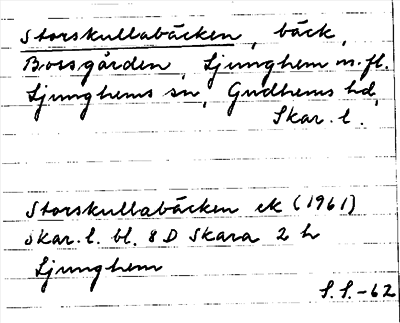 Storskullabäcken, bäck,
Bossgården, Ljunghem m.fl.
Ljunghems sn, Gudhems hd,
Skar. l.
Storskullabäcken ek (1961)
Skar. l. bl. 8 D Skara 2 h
Ljunghem
S.S.-62